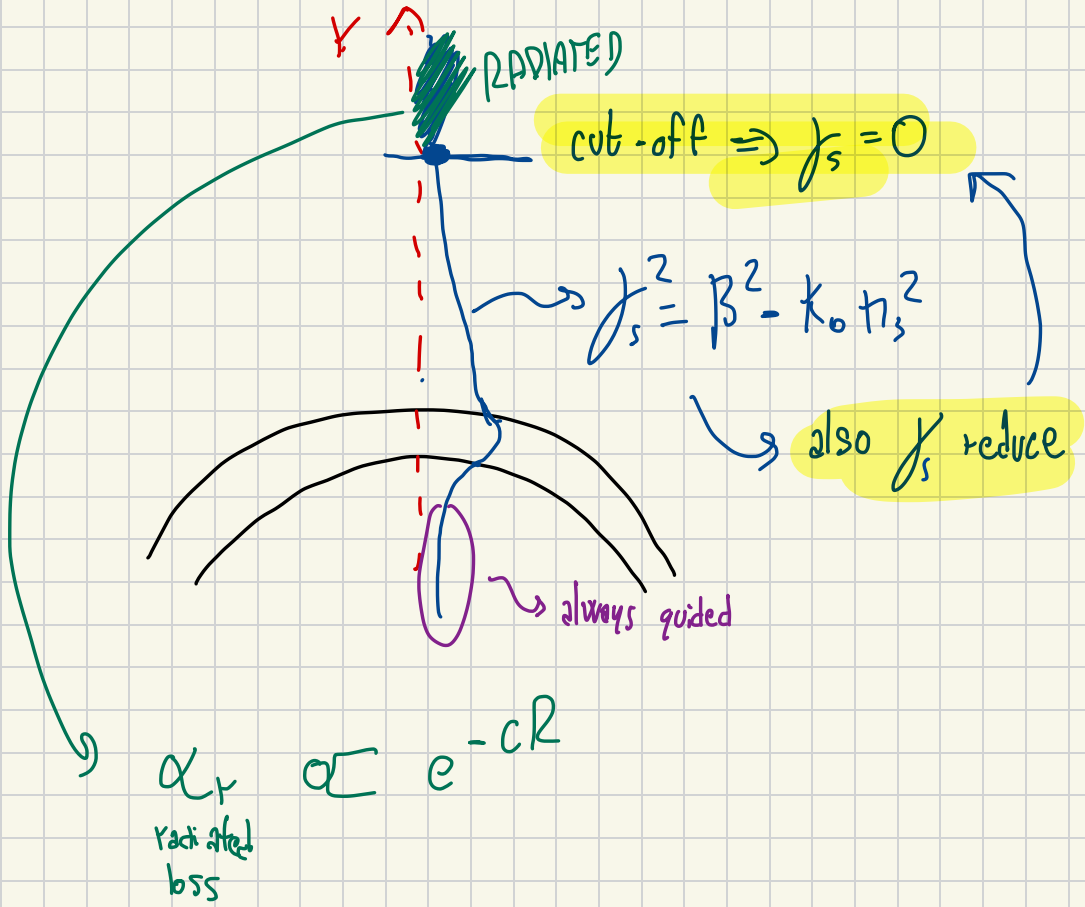 r
RADIATED
cut-off ⇒ γₛ = 0
γₛ² = β² - k₀ nₛ²
also γₛ reduce
always guided
αᵣ ∝ e^{-cR}
radiated
loss